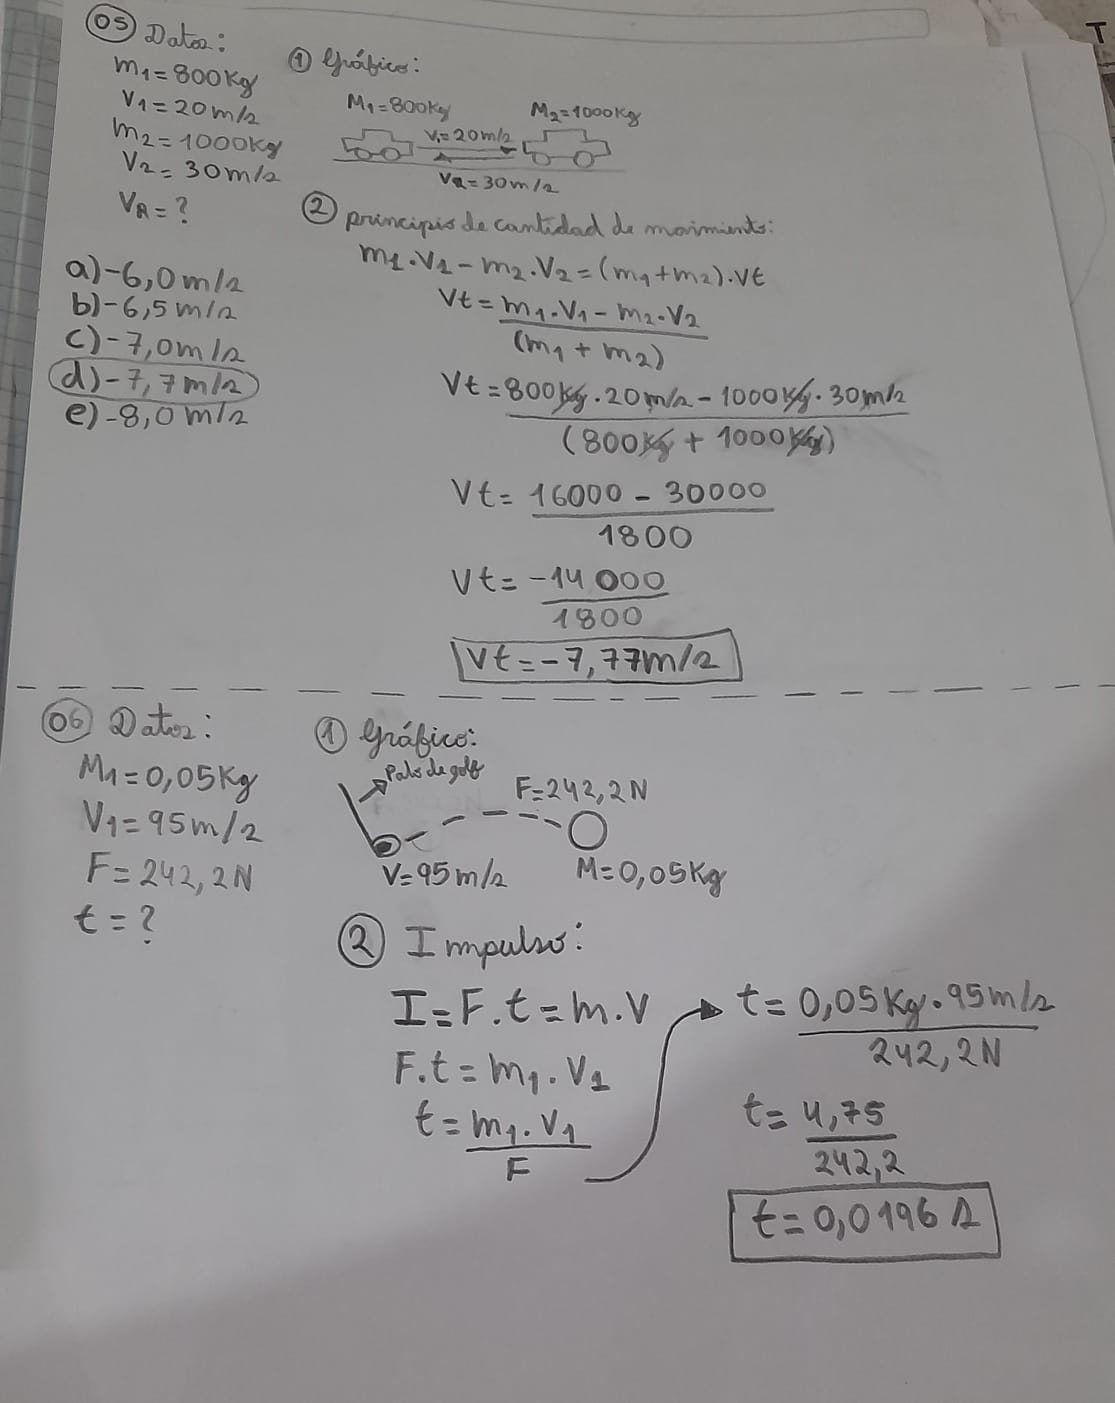 05 Datos:
m₁=800Kg
V₁=20m/s
m₂=1000Kg
V₂=30m/s
VR=?
a)-6,0m/s
b)-6,5m/s
c)-7,0m/s
d)-7,7m/s
e)-8,0m/s
① Gráfico:
M₁=800Kg
M₂=1000Kg
V₁=20m/s
V₂=30m/s
② principio de cantidad de movimiento:
m₁.V₁-m₂.V₂=(m₁+m₂).Vt
Vt=m₁.V₁-m₂.V₂
(m₁+m₂)
Vt=800Kg.20m/s-1000Kg.30m/s
(800Kg+1000Kg)
Vt=16000-30000
1800
Vt=-14000
1800
Vt=-7,77m/s
06 Datos:
M₁=0,05Kg
V₁=95m/s
F=242,2N
t=?
① Gráfico:
Palo de golf
F=242,2N
V=95m/s
M=0,05Kg
② Impulso:
I=F.t=m.V
F.t=m₁.V₁
t=m₁.V₁
F
t=0,05Kg.95m/s
242,2N
t=4,75
242,2
t=0,0196s
T